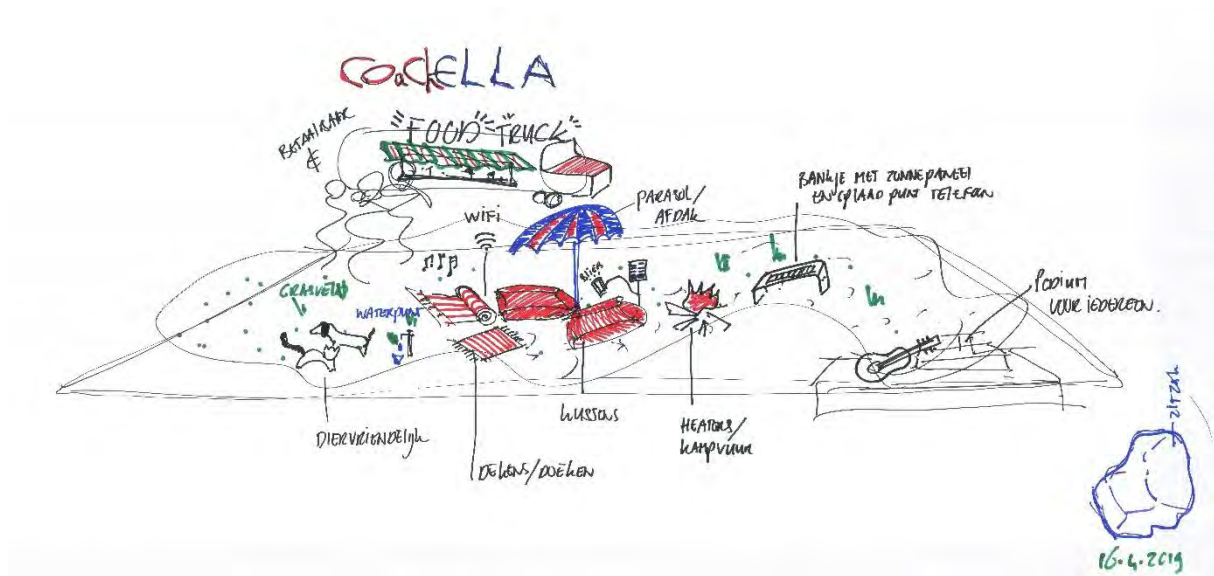 CoachELLA
"FOOD" TRUCK"
BETAALBAAR
€
WIFI
PARASOL/
AFDAK
BANKJE MET ZONNEPANEEL
EN OPLAAD PUNT TELEFOON
GRASVELD
WATERPUNT
BIER
PODIUM
VOOR IEDEREEN.
DIERVRIENDELIJK
DEKENS/DOEKEN
KUSSENS
HEATERS/
KAMPVUUR
ZITZAK
16.4.2019